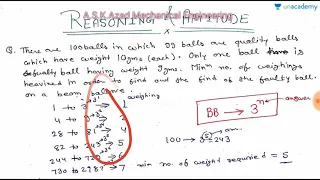 REASONING & APTITUDE
A.S.K Azad Mechanical Engineering
unacademy
Q. There are 100 balls in which 99 balls are quality balls
which have weight 10gms (each). Only one ball is
defaulty ball having weight 9gms. Minm no. of weighings
required in order to find out the find of the faulty ball
on a beam balance.
weighing
1 to 3 → 1
4 to 9 →
28 to 81 → 4
82 to 243 → 5
244 to 729 → 6
730 to 2987 → 7
BB → 3ⁿ
answer
100 → 3⁵ = 243
ans.
min no. of weight required = 5